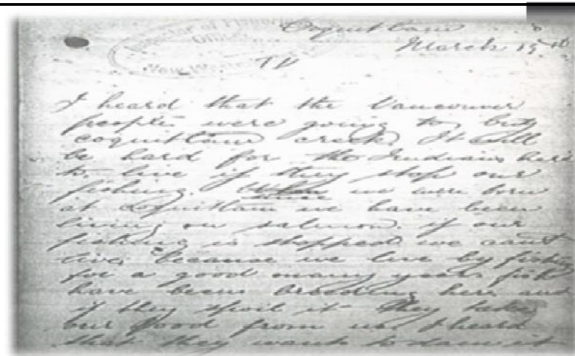 Coquitlam
March 15th
I heard that the Vancouver
people were going to buy
coquitlam creek. It will
be hard for the Indians here
to live if they stop our
fishing. we were born
at Coquitlam we have been
living on salmon. if our
fishing is stopped we cant
live, because we live by fish
for a good many years fish
have been breeding here and
if they spoil it they take
our food from us. I heard
that they want to dam it